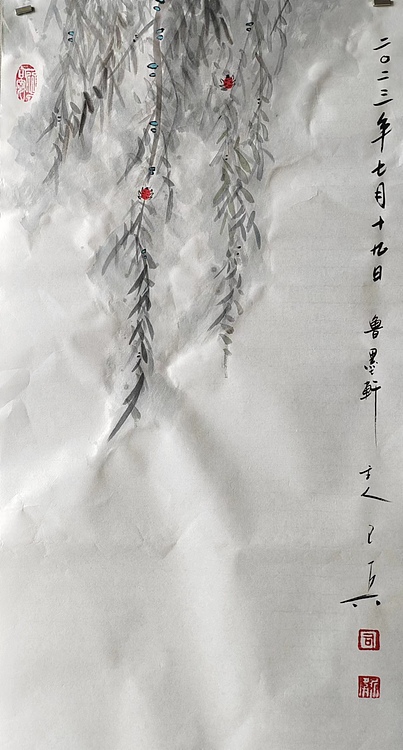 二〇二三年七月十九日 魯墨軒 主人
司